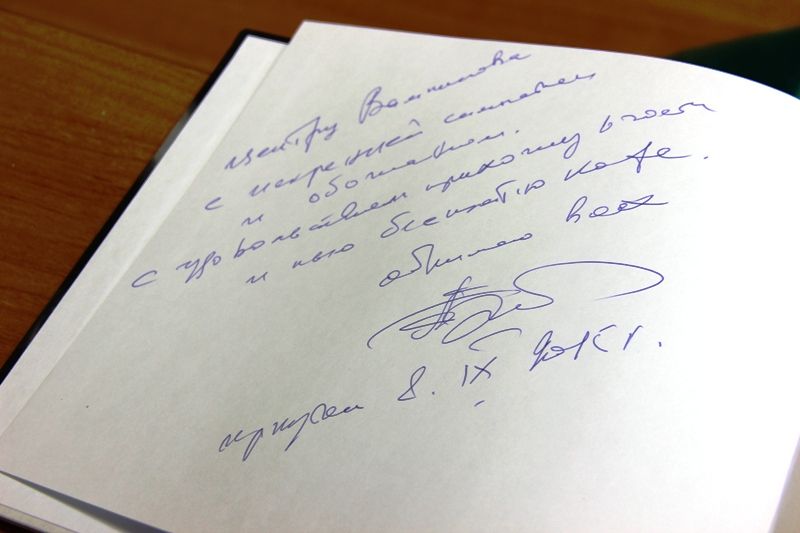 Центру Вампилова
с искренней симпатией
и обожанием.
с удовольствием прихожу в гости
и пью бесплатно кофе.
обнимаю всех
Иркутск 8. IX г.